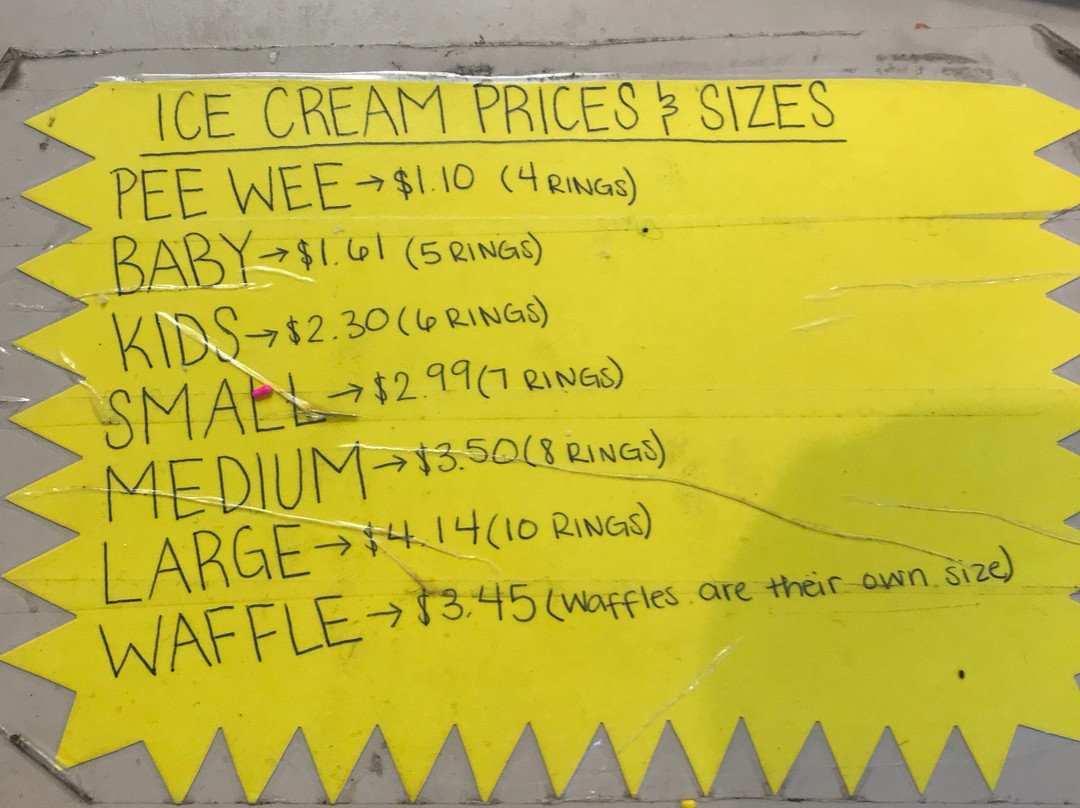 ICE CREAM PRICES & SIZES
PEE WEE → $1.10 (4 RINGS)
BABY → $1.61 (5 RINGS)
KIDS → $2.30 (6 RINGS)
SMALL → $2.99 (7 RINGS)
MEDIUM → $3.50 (8 RINGS)
LARGE → $4.14 (10 RINGS)
WAFFLE → $3.45 (waffles are their own size)